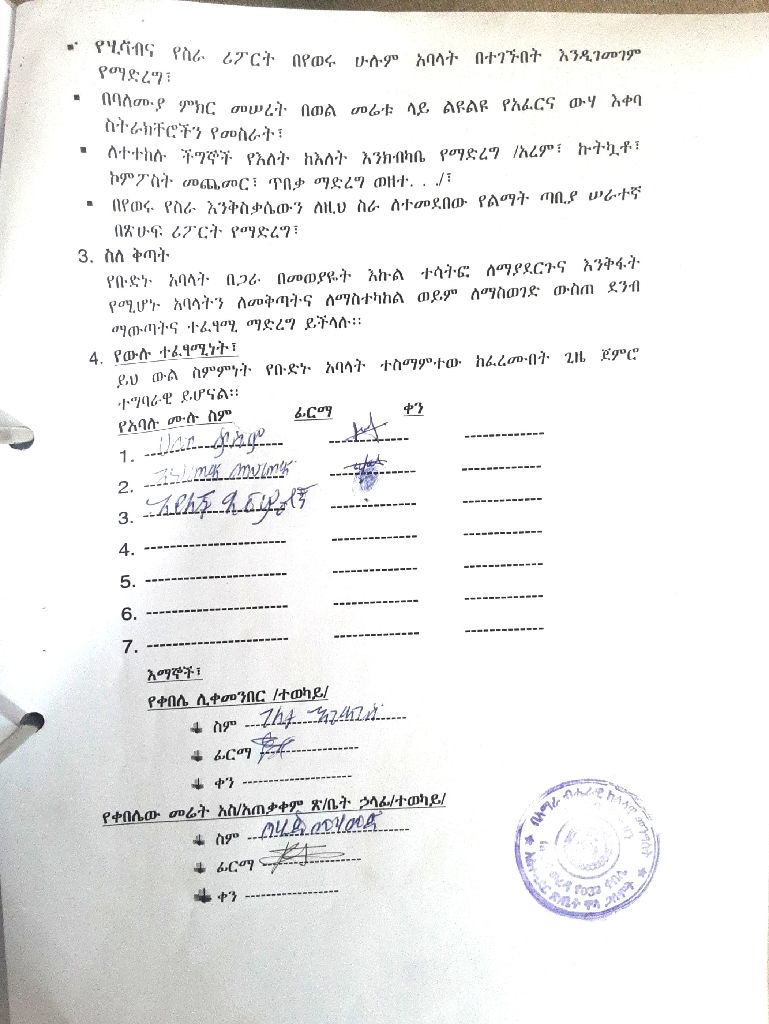 የሂሳብና የስራ ሪፖርት በየወሩ ሁሉም አባላት በተገኙበት እንዲገመገም
የማድረግ፣
በባለሙያ ምክር መሠረት በወል መሬቱ ላይ ልዩልዩ የአፈርና ውሃ እቀባ
ስትራክቸሮችን የመስራት፣
ለተተከሉ ችግኞች የእለት ከእለት እንክብካቤ የማድረግ /አረም፣ ኩትኳቶ፣
ኮምፖስት መጨመር፣ ጥበቃ ማድረግ ወዘተ. . ./፣
በየወሩ የስራ እንቅስቃሴውን ለዚህ ስራ ለተመደበው የልማት ጣቢያ ሠራተኛ
በጽሁፍ ሪፖርት የማድረግ፣
3. ስለ ቅጣት
የቡድኑ አባላት በጋራ በመወያዬት እኩል ተሳትፎ ለማያደርጉና እንቅፋት
የሚሆኑ አባላትን ለመቅጣትና ለማስተካከል ወይም ለማስወገድ ውስጠ ደንብ
ማውጣትና ተፈፃሚ ማድረግ ይችላሉ፡፡
4. የውሉ ተፈፃሚነት፣
ይህ ውል ስምምነት የቡድኑ አባላት ተስማምተው ከፈረሙበት ጊዜ ጀምሮ
ተግባራዊ ይሆናል፡፡
የአባሉ ሙሉ ስም ፊርማ ቀን
1.
2.
3.
4.
5.
6.
7.
እማኞች፣
የቀበሌ ሊቀመንበር /ተወካይ/
ስም
ፊርማ
ቀን
የቀበሌው መሬት አስ/አጠቃቀም ጽ/ቤት ኃላፊ/ተወካይ/
ስም መሀመድ
ፊርማ
ቀን
በአማራ ብሔራዊ ክልላዊ መንግስት